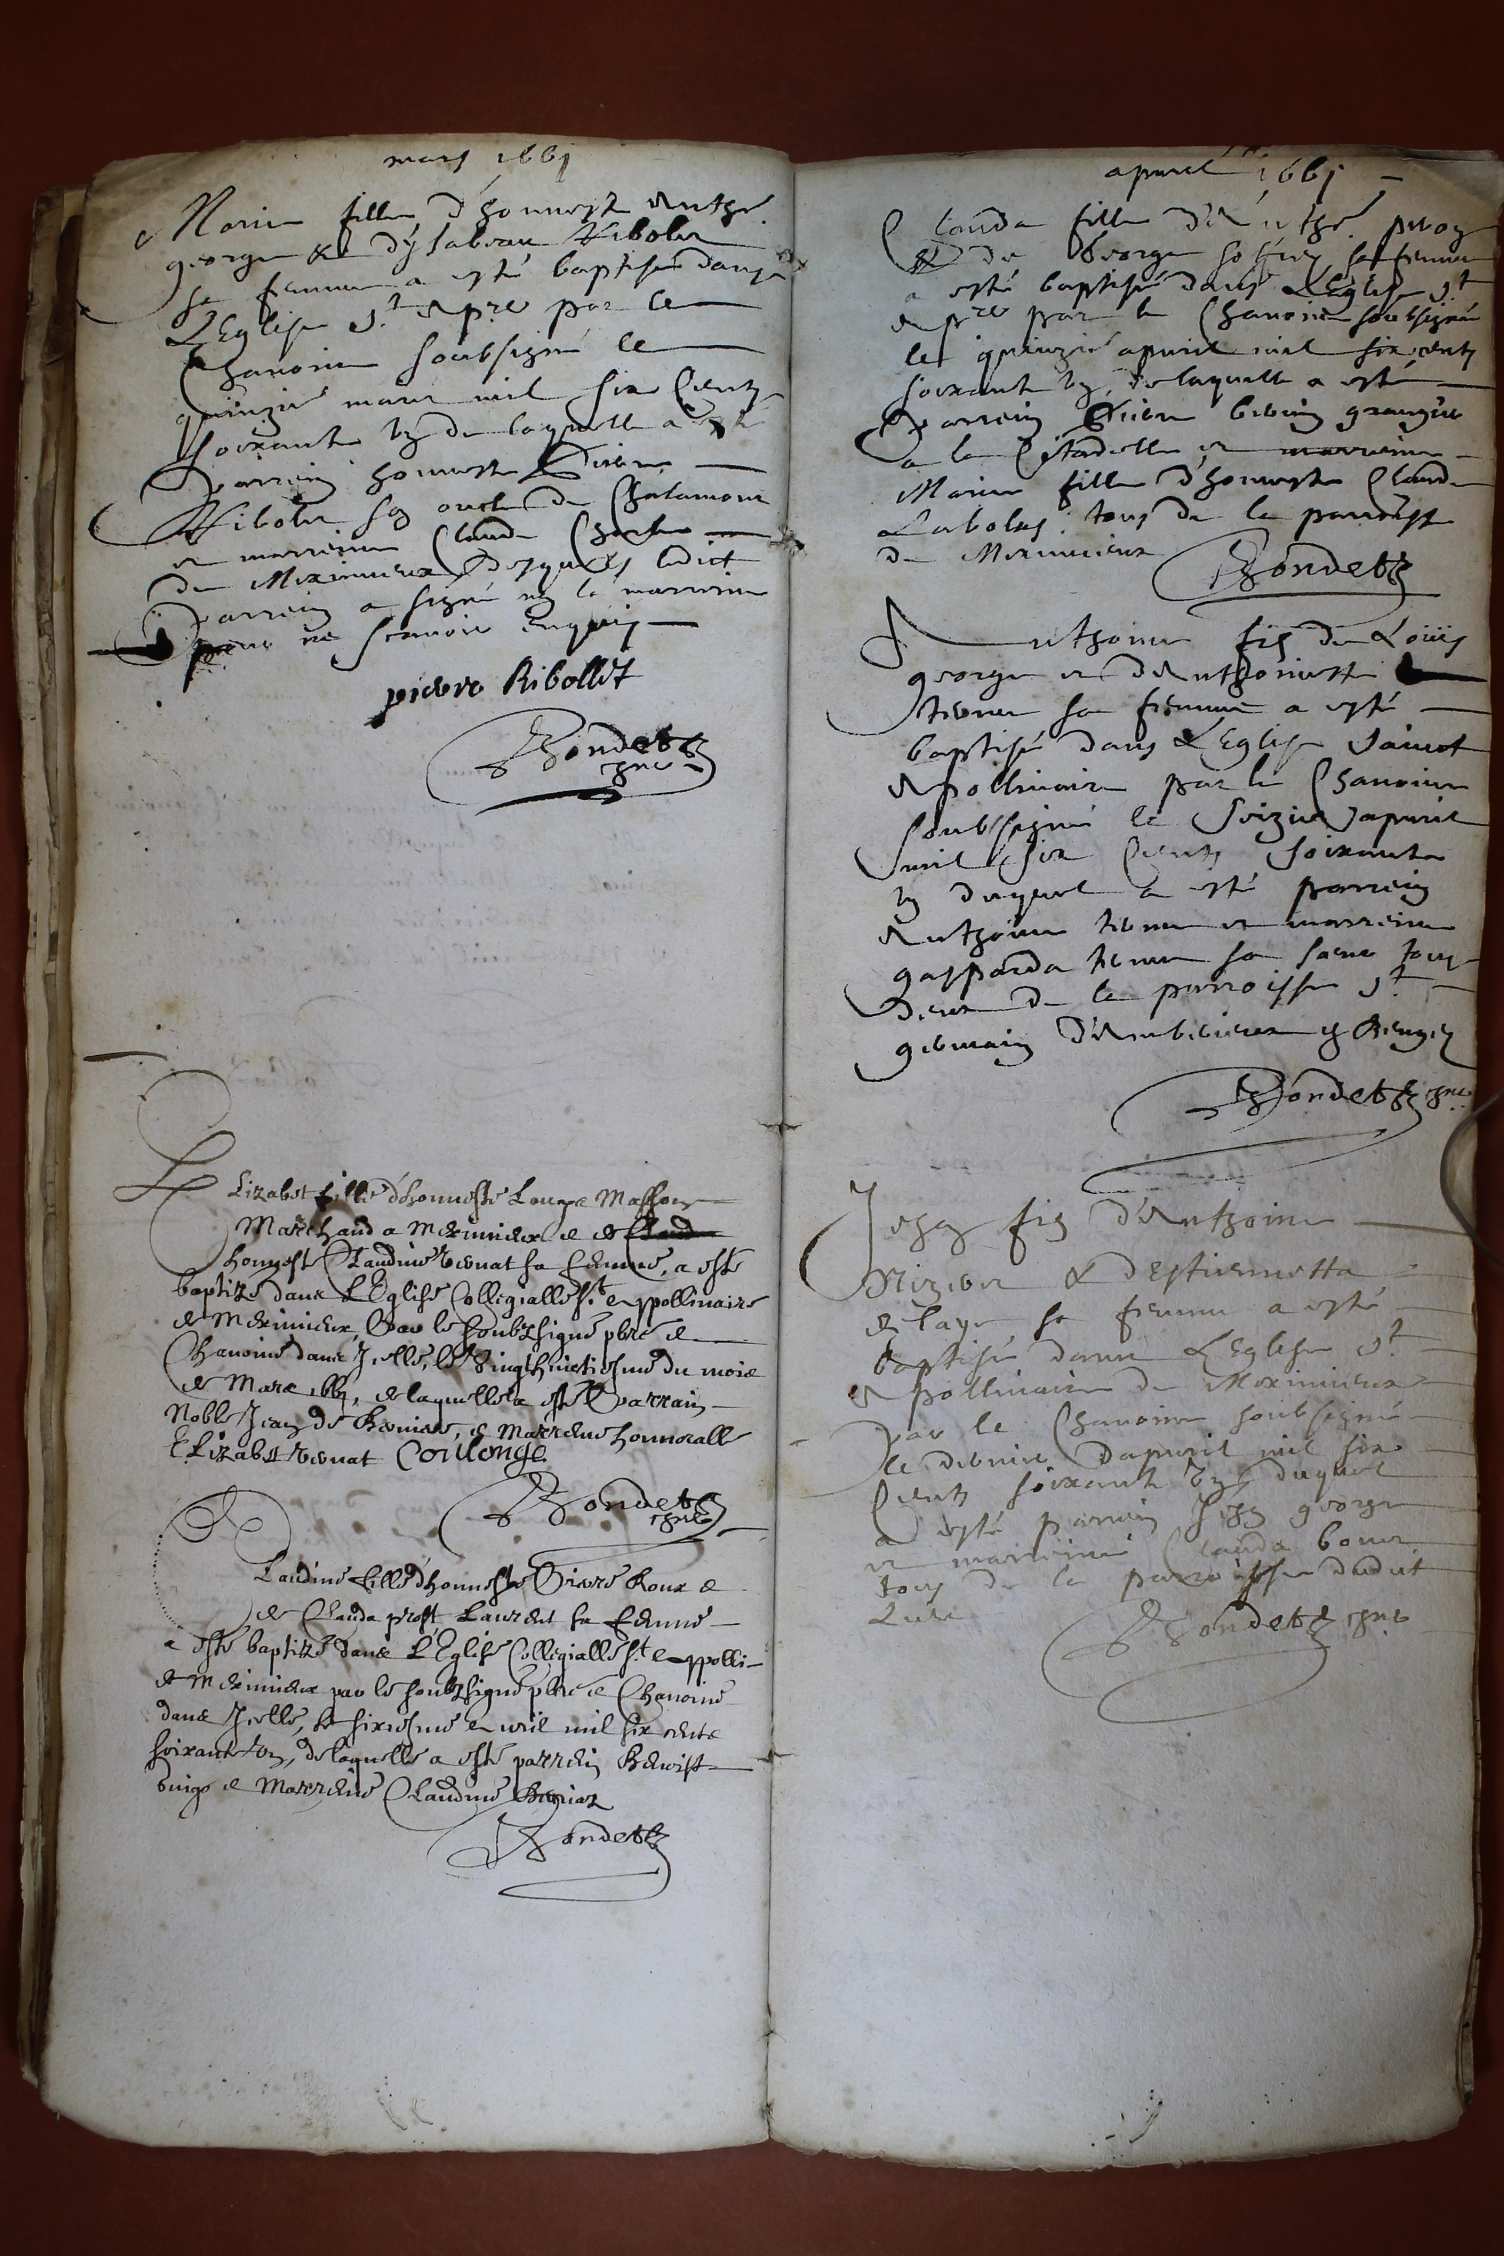 mars 1661
Marie fille d'honneste Anthe
george & d'ysabeau Ribolet
sa femme a esté baptisée dans
L'Eglise St Apre par le
Chanoine soubsigné le
quinzie mars mil six Centz
soixante ung de laquelle a esté
Parrein honneste Pierre
Ribolet son oncle de Chalamont
et marreine Clauda
de Meximieux desquels ledict
Parrein a signé non la marreine
pour ne scavoir enquis
pierre Ribollet
Rondetz
chne
Elizabet fille d'honneste Louys Masson
Marchand a Meximieux et de
honneste Claudine Revenat sa femme, a esté
baptizée dans L'Eglise Collegialle St Appollinaire
de Meximieux, Par le soubzsigné pbre et
Chanoine dans Icelle, le vingthuictiesme du mois
de Mars 1661, de laquelle a esté Parrain
Noble Jean de et Marrene honnorable
Elizabet Revenat Coulonge
Rondetz
chne
Claudine fille d'honneste Pierre Roux et
de Clauda prost Laurent sa femme
a esté baptizée dans L'Eglise Collegialle St Appolli
de Meximieux par le soubzsigné pbre et Chanoine
dans Icelle, le sixiesme Avril mil six cents
soixante ung, de laquelle a esté parrein Benoist
et Marrene Claudine
Rondetz
apuril 1661
Clauda fille d'Anthe
& de George sa femme
a esté baptisée dans L'Eglise St
Apre par le Chanoine soubsigné
le quinzie apuril mil six centz
soixante ung, de laquelle a esté
Parrein Pierre granger
a la Citadelle et
Marie fille d'honneste Claude
Labolas tous de la parroisse
de Meximieux
Rondetz
Anthoine fils de Loüis
george et d'Anthoinette
tievent sa femme a esté
baptisé dans L'Eglise Sainct
Apollinaire par le Chanoine
soubsigné le Seizie apuril
mil six Centz soixante
ung duquel a esté parrein
Anthoine et marreine
gasparda sa soeur tous
deux de la parroisse St
germain d'Amberieux
Rondetz chne
Jehan fils d'Anthoine
Nizier & d'Estiennette
de laye sa femme a esté
baptisé dans L'Eglise St
Apollinaire de Meximieux
Par le Chanoine soubsigné
le dernier d'apuril mil six
Centz soixante ung duquel
a esté parrein Jehan george
et marreine Clauda
tous de la parroisse dudict
Lieu
Rondetz chne